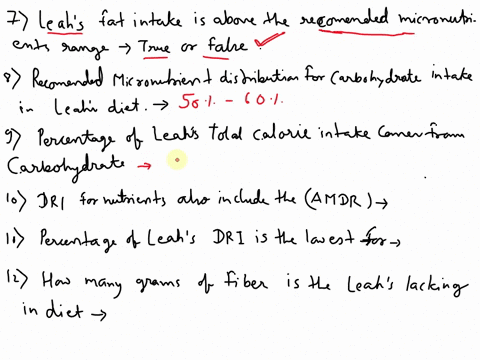 7) Leah's fat intake is above the recomended micronutri-
ents range → True or false ✓
8) Recomended Micronutrient distribution for Carbohydrate intake
in Leah's diet. → 50% - 60%
9) Percentage of Leah's total calorie intake comes from
Carbohydrate →
10) DRI for nutrients also include the (AMDR) →
11) Percentage of Leah's DRI is the lowest for →
12) How many grams of fiber is the Leah's lacking
in diet →